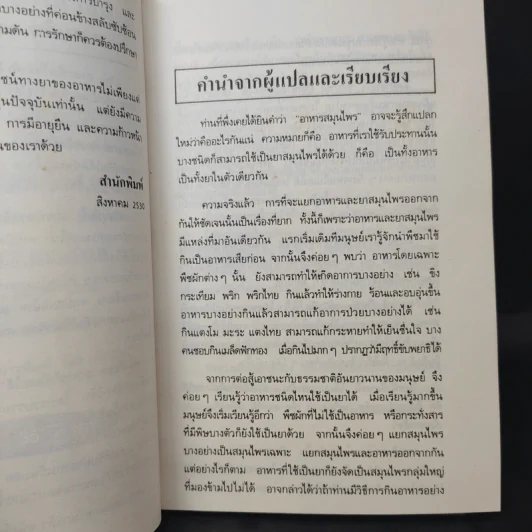 การบำรุง และ
บางอย่างที่ค่อนข้างสลับซับซ้อน
การรักษาก็ควรต้องปรึกษา
ทางยาของอาหารไม่เพียงแต่
ปัจจุบันเท่านั้น แต่ยังมีความ
การมีอายุยืน และความก้าวหน้า
ของเราด้วย
สำนักพิมพ์
สิงหาคม 2530
คำนำจากผู้แปลและเรียบเรียง
ท่านที่พึ่งเคยได้ยินคำว่า "อาหารสมุนไพร" อาจจะรู้สึกแปลก
ใหม่ว่าคืออะไรกันแน่ ความหมายก็คือ อาหารที่เราใช้รับประทานนั้น
บางชนิดก็สามารถใช้เป็นยาสมุนไพรได้ด้วย ก็คือ เป็นทั้งอาหาร
เป็นทั้งยาในตัวเดียวกัน
ความจริงแล้ว การที่จะแยกอาหารและยาสมุนไพรออกจาก
กันให้ชัดเจนนั้นเป็นเรื่องที่ยาก ทั้งนี้ก็เพราะว่าอาหารและยาสมุนไพร
มีแหล่งที่มาอันเดียวกัน แรกเริ่มเดิมทีมนุษย์เรารู้จักนำพืชมาใช้
กินเป็นอาหารเสียก่อน จากนั้นจึงค่อยๆ พบว่า อาหารโดยเฉพาะ
พืชผักต่างๆ นั้น ยังสามารถทำให้เกิดอาการบางอย่าง เช่น ขิง
กระเทียม พริก พริกไทย กินแล้วทำให้ร่างกาย ร้อนและอบอุ่นขึ้น
อาหารบางอย่างกินแล้วสามารถแก้อาการป่วยบางอย่างได้ เช่น
กินแตงโม มะระ แตงไทย สามารถแก้กระหายทำให้เย็นชื่นใจ บาง
คนชอบกินเมล็ดฟักทอง เมื่อกินไปมากๆ ปรากฏว่ามีฤทธิ์ขับพยาธิได้
จากการต่อสู้เอาชนะกับธรรมชาติอันยาวนานของมนุษย์ จึง
ค่อยๆ เรียนรู้ว่าอาหารชนิดไหนใช้เป็นยาได้ เมื่อเรียนรู้มากขึ้น
มนุษย์จึงเริ่มเรียนรู้อีกว่า พืชผักที่ไม่ใช้เป็นอาหาร หรือกระทั่งสาร
ที่มีพิษบางตัวก็ยังใช้เป็นยาด้วย จากนั้นจึงค่อยๆ แยกสมุนไพร
บางอย่างเป็นสมุนไพรเฉพาะ แยกสมุนไพรและอาหารออกจากกัน
แต่อย่างไรก็ตาม อาหารที่ใช้เป็นยาก็ยังจัดเป็นสมุนไพรกลุ่มใหญ่
ที่มองข้ามไปไม่ได้ อาจกล่าวได้ว่าถ้าท่านมีวิธีการกินอาหารอย่าง